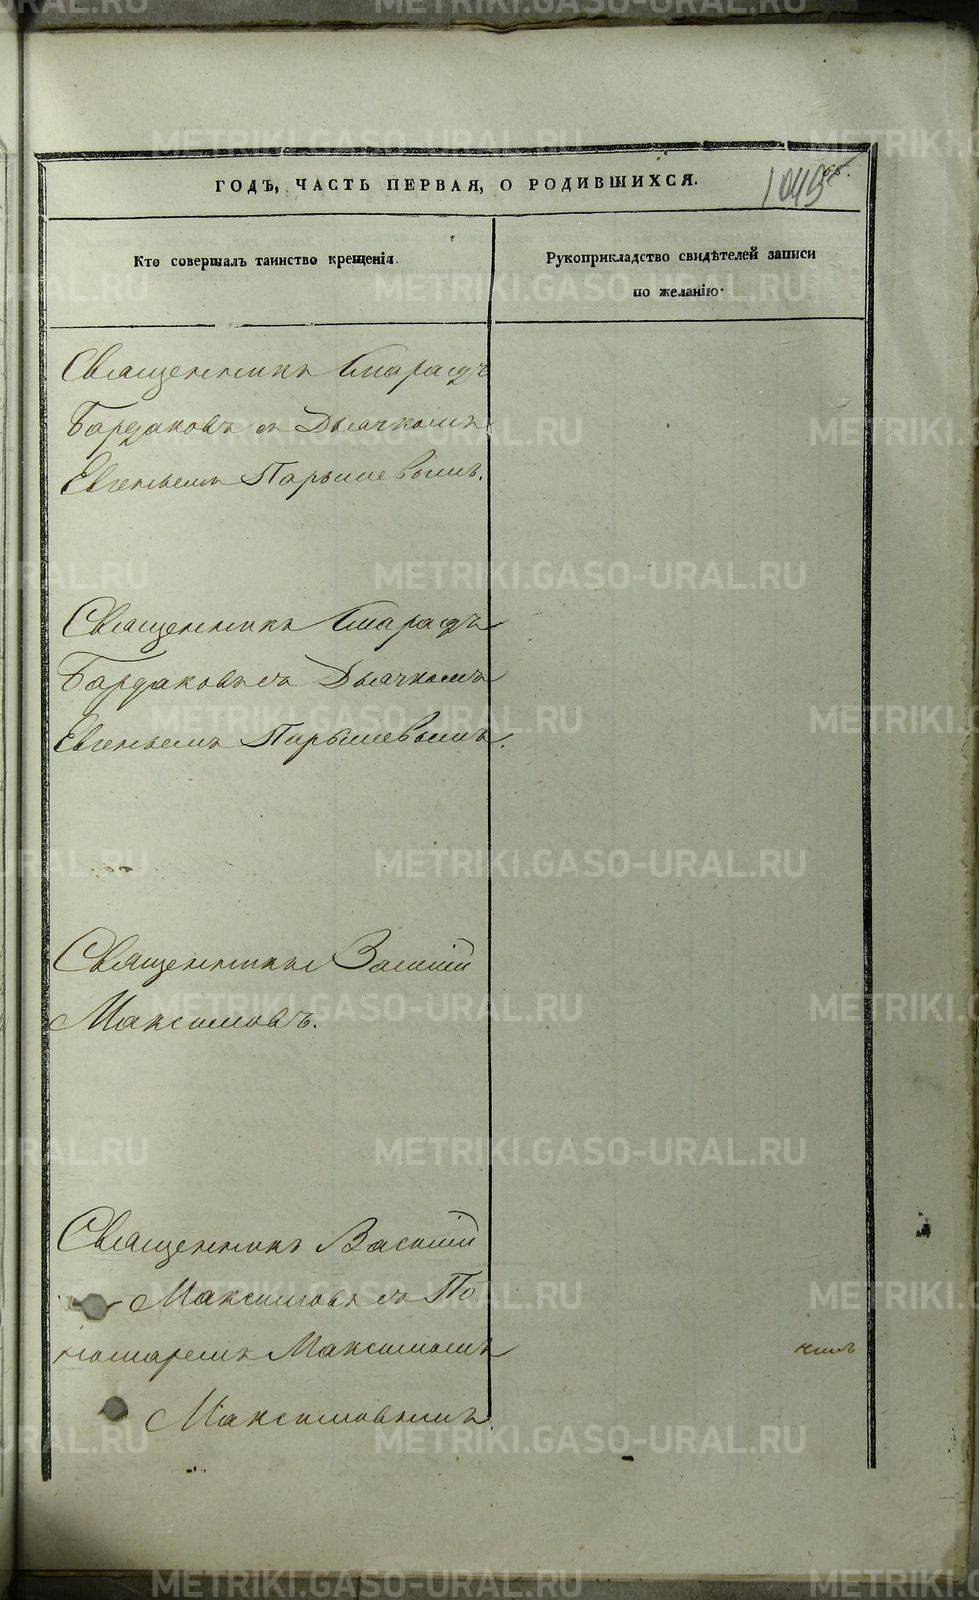 ГОДЪ, ЧАСТЬ ПЕРВАЯ, О РОДИВШИХСЯ.
Кто совершалъ таинство крещенія.
Рукоприкладство свидѣтелей записи
по желанію.
Священникъ Смарагдъ
Бардаковъ съ Дьячкомъ
Евгеньемъ Парышевымъ.
Священникъ Смарагдъ
Бардаковъ съ Дьячкомъ
Евгеньемъ Парышевымъ.
Священникъ Василій
Максимовъ.
Священникъ Василій
Максимовъ съ По
номаремъ Максимомъ
Максимовымъ.
METRIKI.GASO-URAL.RU